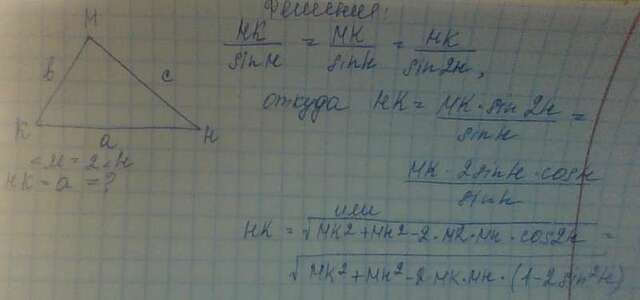 Решения:
M
b
c
K
a
H
∠M = 2∠H
HK - a = ?
HK / sin M = MK / sin H = HK / sin 2H,
откуда HK = MK · sin 2H / sin H =
MK · 2 sin H · cos H / sin H
или
HK = √MK² + MH² - 2 · MK · MH · cos 2H =
√MK² + MH² - 2 · MK · MH · (1 - 2 sin² H)